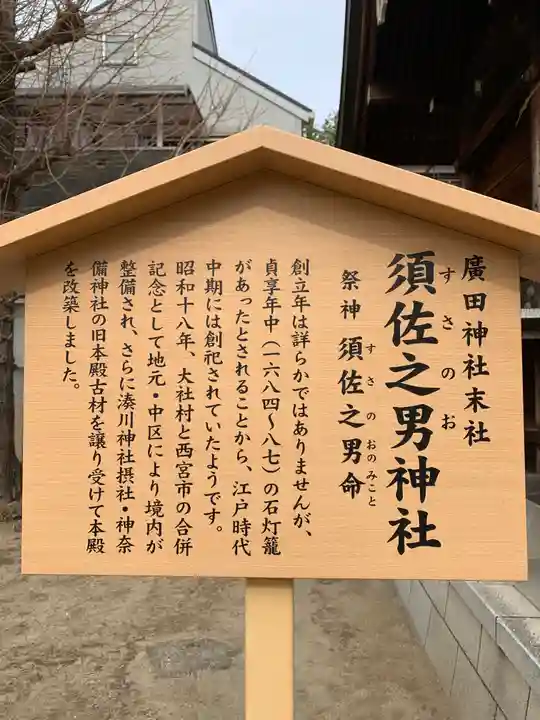 廣田神社末社
須佐之男神社
すさのお
祭神 須佐之男命
すさのおのみこと
創立年は詳らかではありませんが、
貞享年中（一六八四～八七）の石灯籠
があったとされることから、江戸時代
中期には創祀されていたようです。
昭和十八年、大社村と西宮市の合併
記念として地元・中区により境内が
整備され、さらに湊川神社摂社・神奈
備神社の旧本殿古材を譲り受けて本殿
を改築しました。